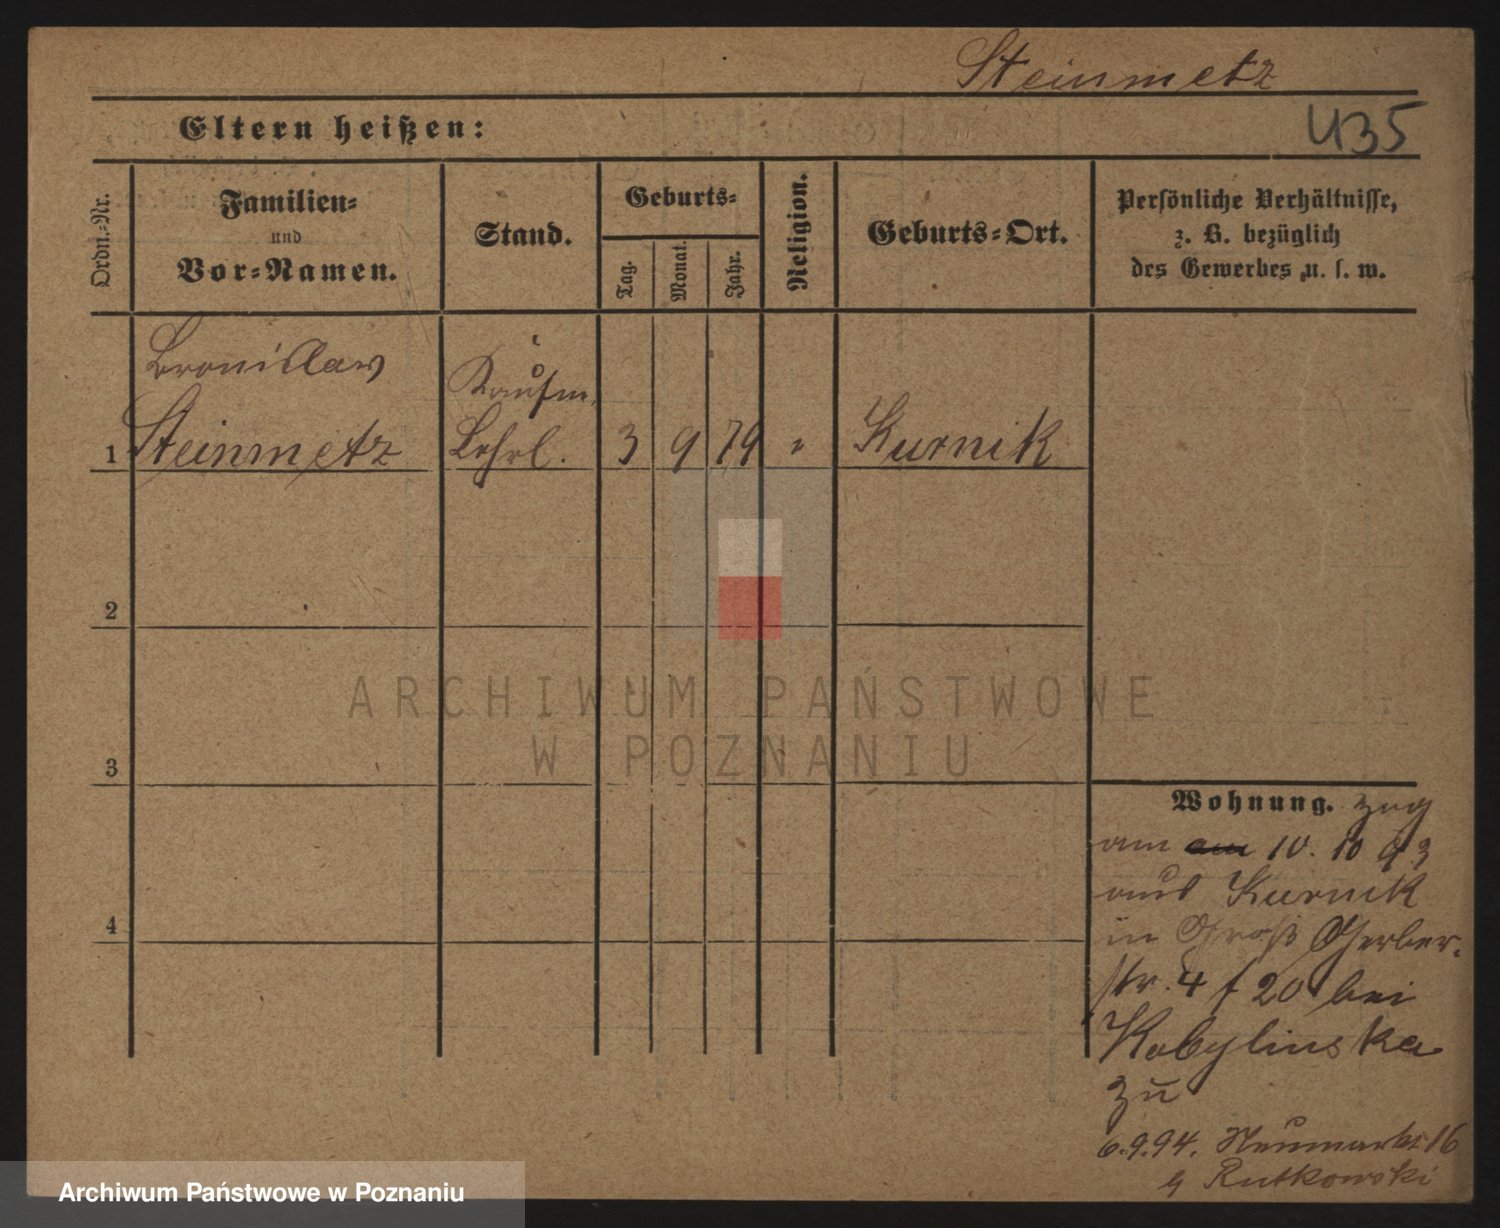 Steinmetz
Eltern heißen:
435
Ordn.-Nr.
Familien-
und
Vor-Namen.
Stand.
Geburts-
Tag.
Monat.
Jahr.
Religion.
Geburts-Ort.
Persönliche Verhältnisse,
z. B. bezüglich
des Gewerbes u. s. w.
Bronislaw
Kaufm.
1 Steinmetz Lehrl. 3 9 79 " Kurnik
2
3
4
Wohnung. zog
am 10. 10 93
aus Kurnik
in Groß Gerber-
str. 4 f 20 bei
Kobylinska
zu
6.9.94. Neumarkt 16
Rutkowski
ARCHIWUM PAŃSTWOWE
W POZNANIU
Archiwum Państwowe w Poznaniu